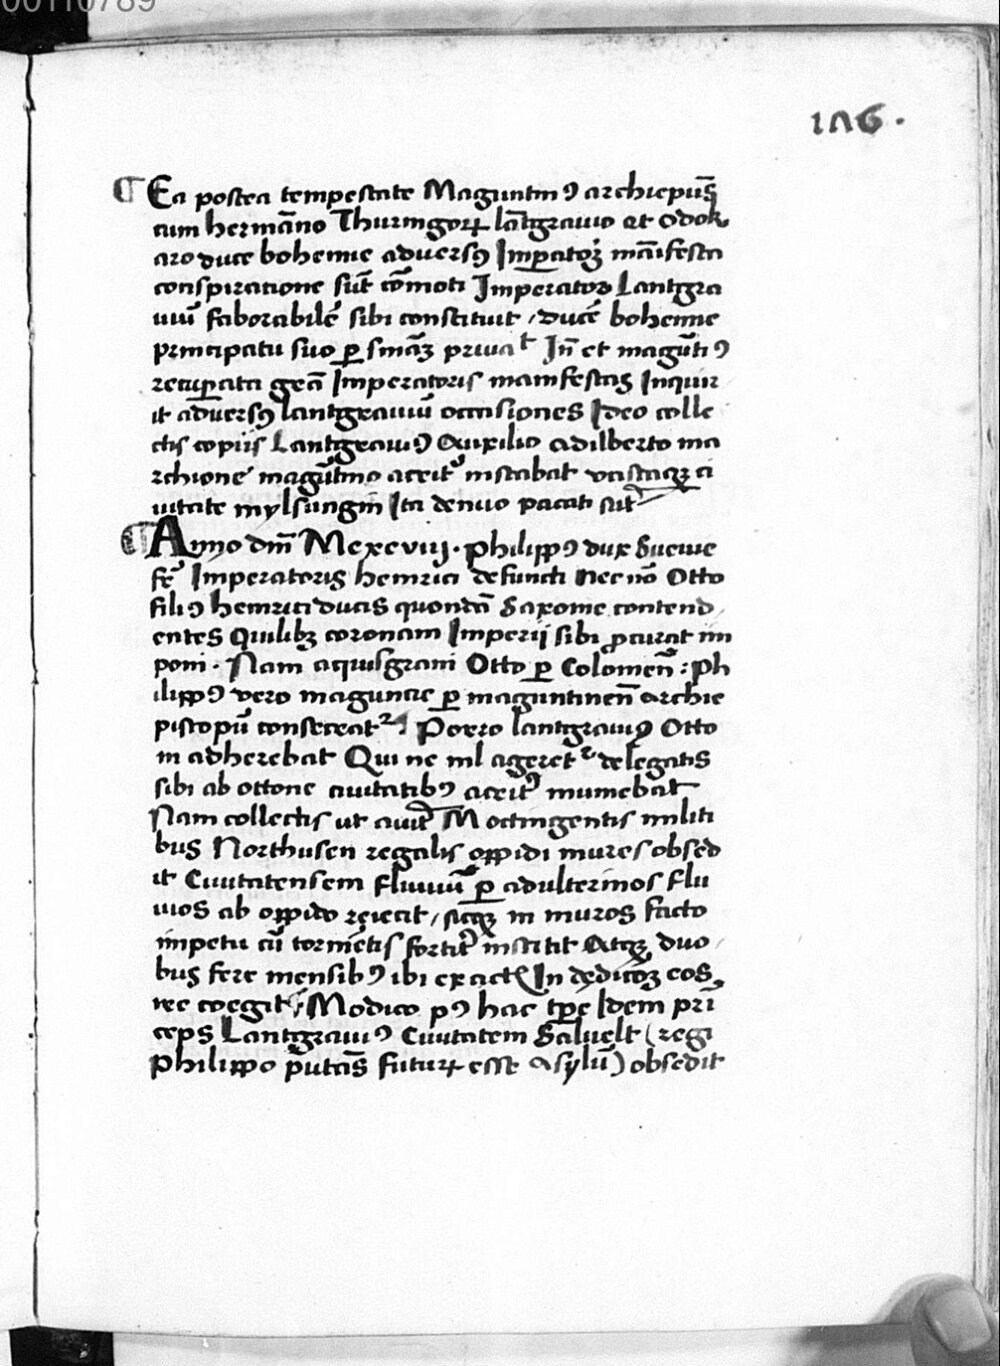 00110789
1Λ6.
¶ Ea postea tempestate Maguntinꝰ archiepūs
cum hermāno Thuringoꝝ lātgrauio et Odok
aro duce bohemie aduersꝰ Imꝑatoꝝ māifesta
conspiratione sūt cōmoti Imperator Lantgra
uiū faborabilē sibi constituit / ducē bohemie
principatu suo ꝑ
recuꝑata grā Imperatoris manifestas Inquir
it aduersꝰ lantgrauiū occasiones Ideo colle
ctis copiis Lantgrauiꝰ Auxilio adilberto ma
rchione instabat ci
uitate mylsungin Ita denuo pacati sūt
¶ Anno dm̄ Mcxcviij. Philippꝰ dux Sueuie
Imperatoris heinrici defuncti Necnō Otto
filiꝰ heinrici ducis quondā Saxonie contend
entes Quilibꝫ coronam Imperii sibi ꝓcurat im
poni. Nam aquisgrani Otto ꝑ Coloniēn : Ph
ilippꝰ vero maguncie ꝑ maguntinen̄ archie
piscopū consecrat Porro lantgrauiꝰ Otto
ni adherebat Qui ne nil ageret delegatis
sibi ab ottone ciuitatibꝰ muniebat
Nam collectis ut M octingentis militi
bus Northusen regalis oppidi mures obsed
it Ciuitatensem fluuiū ꝑ adulterinos flu
uios ab oppido reiecit / sicqꝫ in muros facto
impetu cū tormētis institit Atqꝫ duo
bus fere mensibꝰ ibi exact In eos
rec coegit Modico pꝰ hac tꝑe Idem prī
ceps Lantgrauiꝰ Ciuitatem Saluelt (regi
Philippo putās futuꝝ esse asylū) obsedit